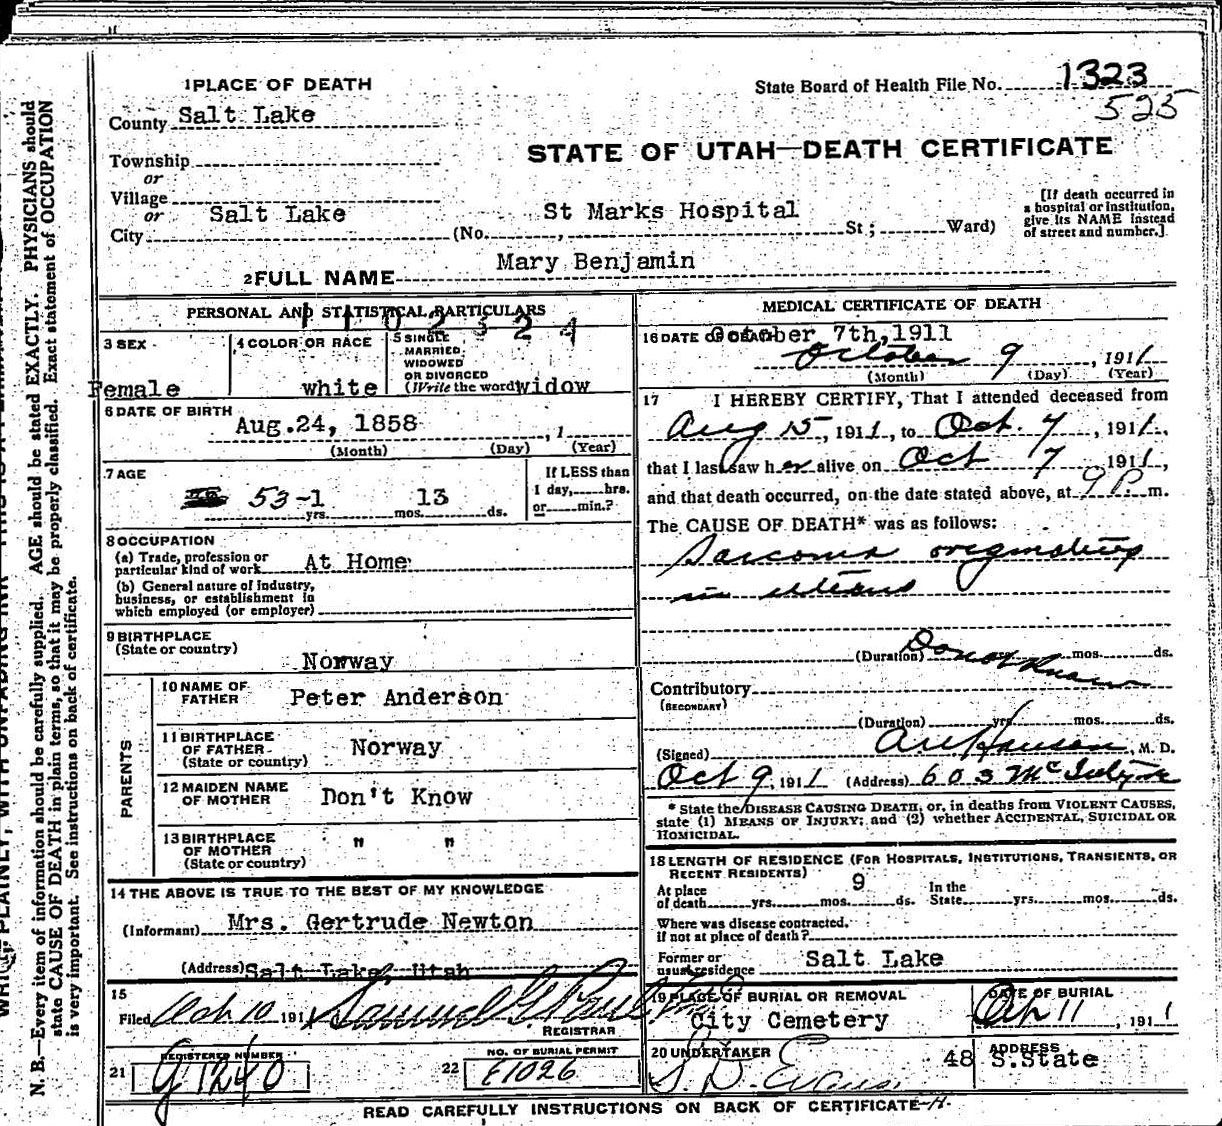 1 PLACE OF DEATH
State Board of Health File No. 1323
525
County Salt Lake
STATE OF UTAH—DEATH CERTIFICATE
Township
or
Village
or
City Salt Lake (No. St Marks Hospital St; Ward)
[If death occurred in
a hospital or institution,
give its NAME instead
of street and number.]
2 FULL NAME Mary Benjamin
PERSONAL AND STATISTICAL PARTICULARS
1102324
3 SEX
Female
4 COLOR OR RACE
white
5 SINGLE
MARRIED,
WIDOWED
OR DIVORCED
(Write the word) widow
6 DATE OF BIRTH
Aug. 24, 1858 , 1
(Month) (Day) (Year)
7 AGE
53-1 13
yrs. mos. ds.
If LESS than
1 day, hrs.
or min.?
8 OCCUPATION
(a) Trade, profession or
particular kind of work At Home
(b) General nature of industry,
business, or establishment in
which employed (or employer)
9 BIRTHPLACE
(State or country)
Norway
PARENTS
10 NAME OF
FATHER Peter Anderson
11 BIRTHPLACE
OF FATHER
(State or country) Norway
12 MAIDEN NAME
OF MOTHER Don't Know
13 BIRTHPLACE
OF MOTHER
(State or country) " "
14 THE ABOVE IS TRUE TO THE BEST OF MY KNOWLEDGE
(Informant) Mrs. Gertrude Newton
(Address) Salt Lake, Utah
15
Filed Oct 10 191 1 Samuel G. Paul
REGISTRAR
REGISTERED NUMBER
21 G 1240
NO. OF BURIAL PERMIT
22 E1026
MEDICAL CERTIFICATE OF DEATH
16 DATE OF DEATH October 7th, 1911
October 9, 1911
(Month) (Day) (Year)
17 I HEREBY CERTIFY, That I attended deceased from
Aug 15, 1911, to Oct. 7, 1911,
that I last saw her alive on Oct 7 1911,
and that death occurred, on the date stated above, at 9 P. m.
The CAUSE OF DEATH* was as follows:
Sarcoma originating
in uterus
(Duration) Do not Know mos. ds.
Contributory
(SECONDARY)
(Duration) yrs. mos. ds.
(Signed) , M. D.
Oct 9, 1911 (Address) 603 McIntyre
* State the DISEASE CAUSING DEATH, or, in deaths from VIOLENT CAUSES,
state (1) MEANS OF INJURY; and (2) whether ACCIDENTAL, SUICIDAL OR
HOMICIDAL.
18 LENGTH OF RESIDENCE (FOR HOSPITALS, INSTITUTIONS, TRANSIENTS, OR
RECENT RESIDENTS)
At place
of death yrs. mos. 9 ds. In the
State yrs. mos. ds.
Where was disease contracted.
if not at place of death?
Former or
usual residence Salt Lake
19 PLACE OF BURIAL OR REMOVAL
City Cemetery
DATE OF BURIAL
Oct 11, 1911
20 UNDERTAKER
S. D. Evans.
ADDRESS
48 S. State
READ CAREFULLY INSTRUCTIONS ON BACK OF CERTIFICATE
N. B.—Every item of information should be carefully supplied. AGE should be stated EXACTLY. PHYSICIANS should
state CAUSE OF DEATH in plain terms, so that it may be properly classified. Exact statement of OCCUPATION
is very important. See instructions on back of certificate.